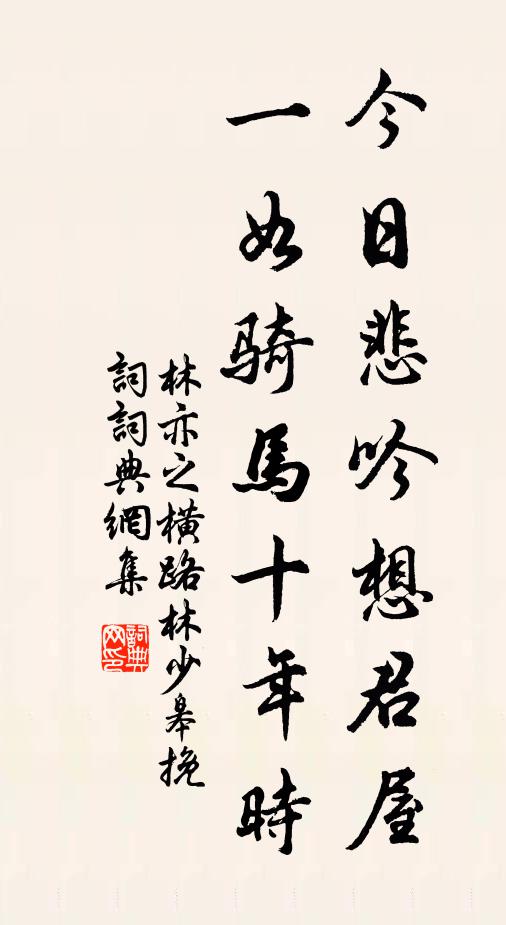 今日悲吟想君屋
一如騎馬十年時
林亦之橫路林少皋挽
詞詞典網集
詞典
网印